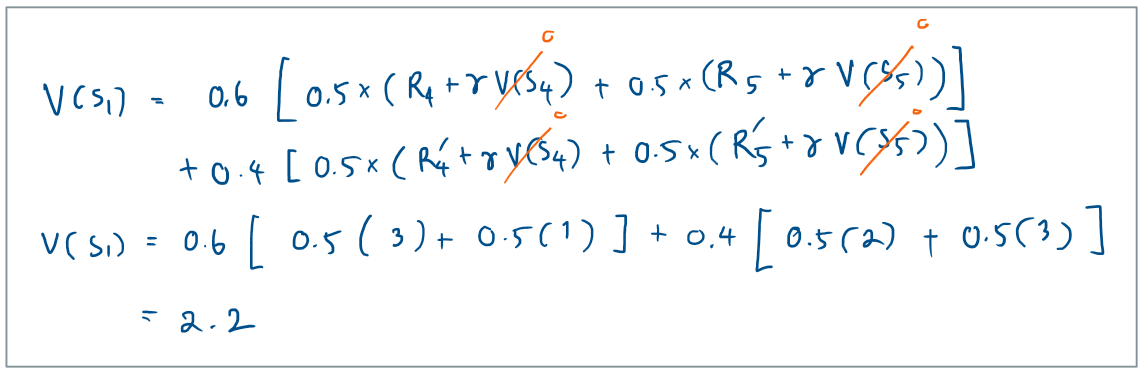 0 0
V(S₁) = 0.6 [ 0.5 × ( R₄ + γ V(S₄) + 0.5 × (R₅ + γ V(S₅))]
0 0
+ 0.4 [ 0.5 × ( R₄' + γ V(S₄) + 0.5 × ( R₅' + γ V(S₅))]
V(S₁) = 0.6 [ 0.5 ( 3 ) + 0.5 (1) ] + 0.4 [ 0.5 (2) + 0.5 (3) ]
= 2.2